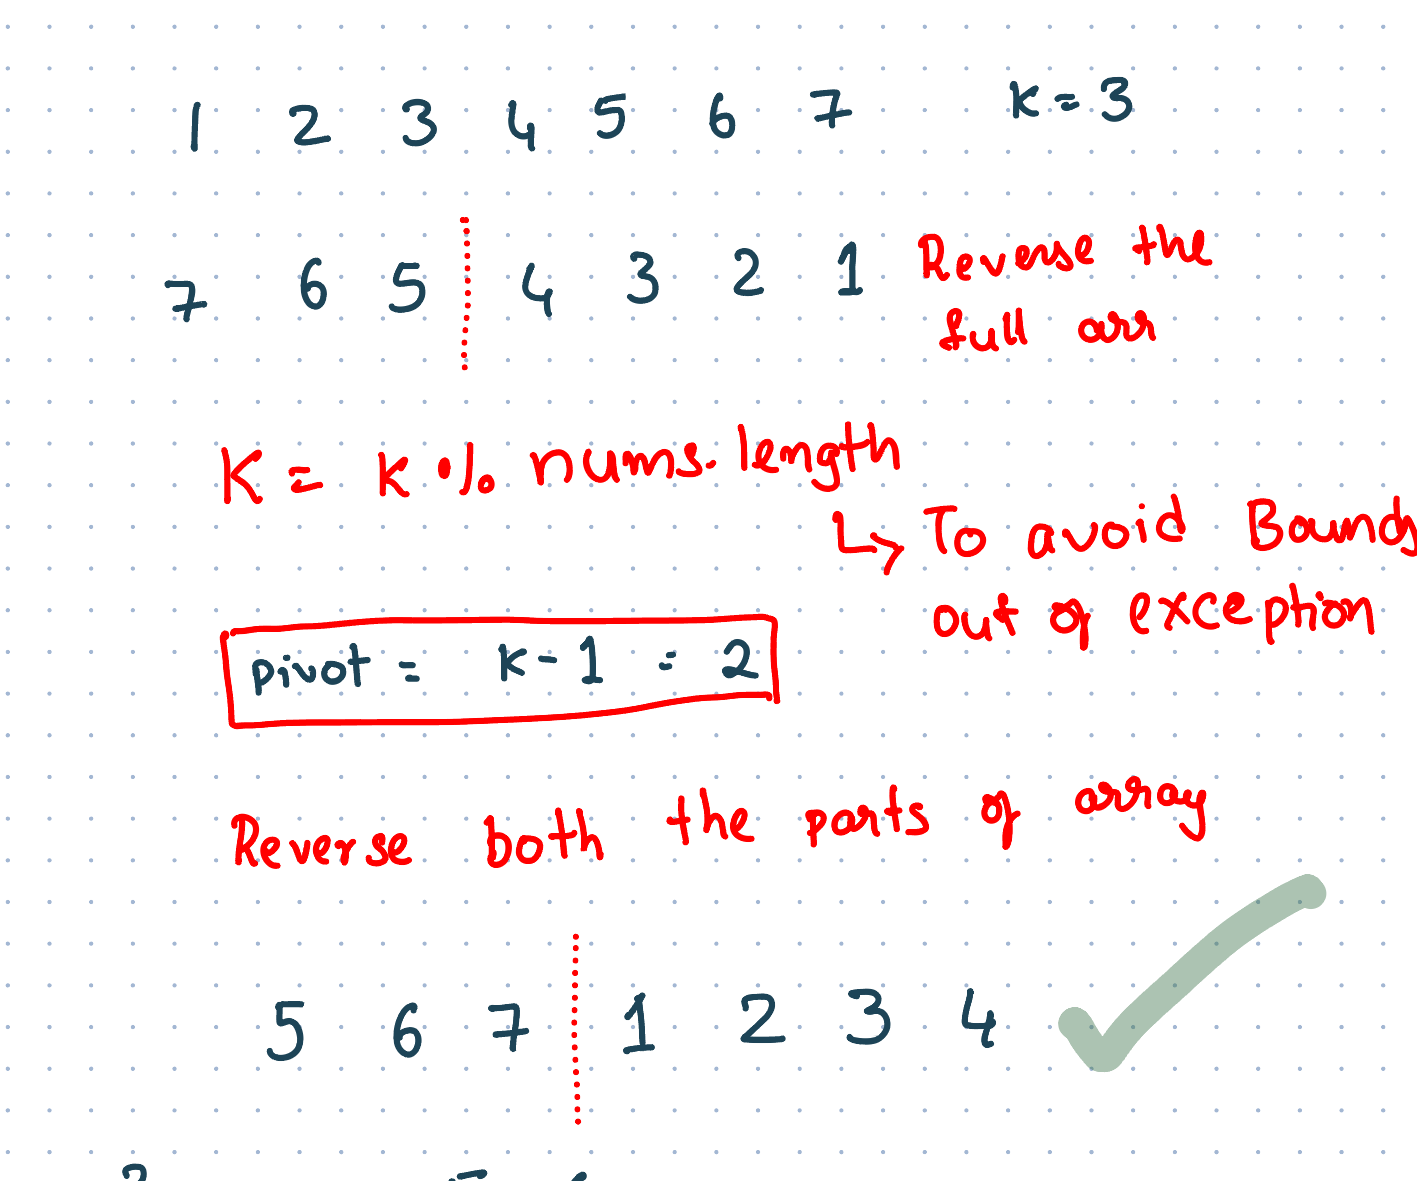 1 2 3 4 5 6 7 K = 3
7 6 5 4 3 2 1 Reverse the
full arr
K = K % nums.length
↳ To avoid Bounds
out of exception
pivot = K - 1 = 2
Reverse both the parts of array
5 6 7 1 2 3 4